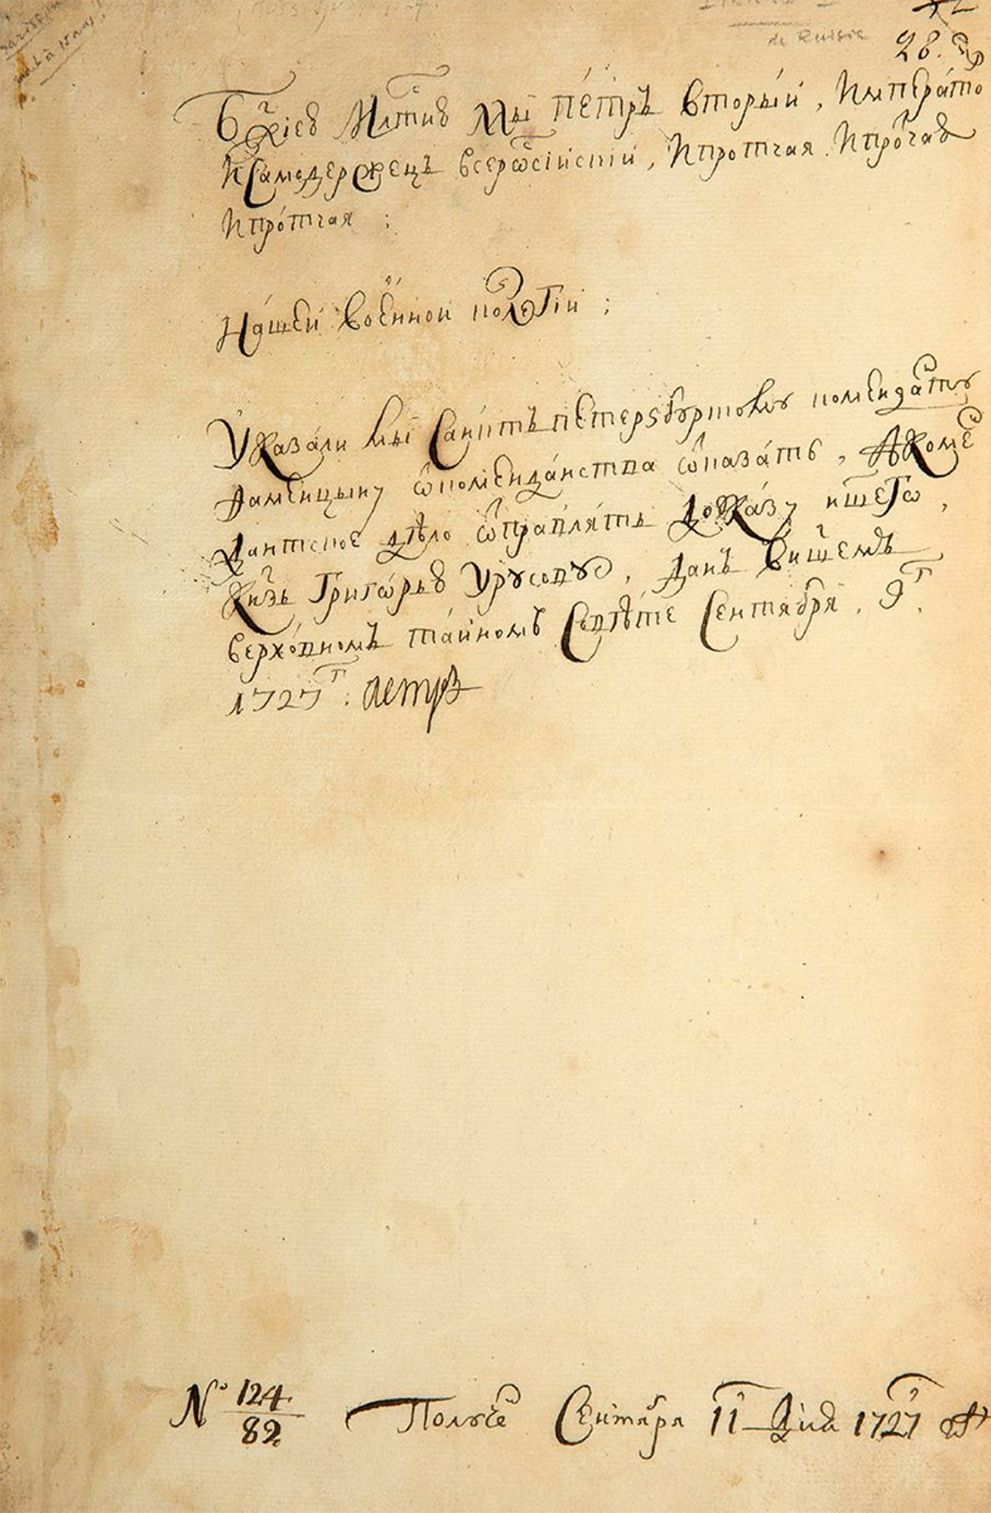 28.
Бжіею Млтию Мы пétръ вторый, Императо
Исамодержецъ всеросіискии, Ипротчая. Ипрочая
Ипротчая :
Нашей Военной колегіи ;
Указали мы Санктъ пétерзбургскому комендату
Фаменцыну ѿ комендáнства ѿказать, Акоме
дантское дѣло ѿправлять до указу ншего,
Кнзь Григорью Урусову, данъ внішемъ
верхóвномъ тáйномъ Совѣте Сентября . 9 г.
1727 г. Петръ
№ 124/82 Получе Сентября 11 дня 1727